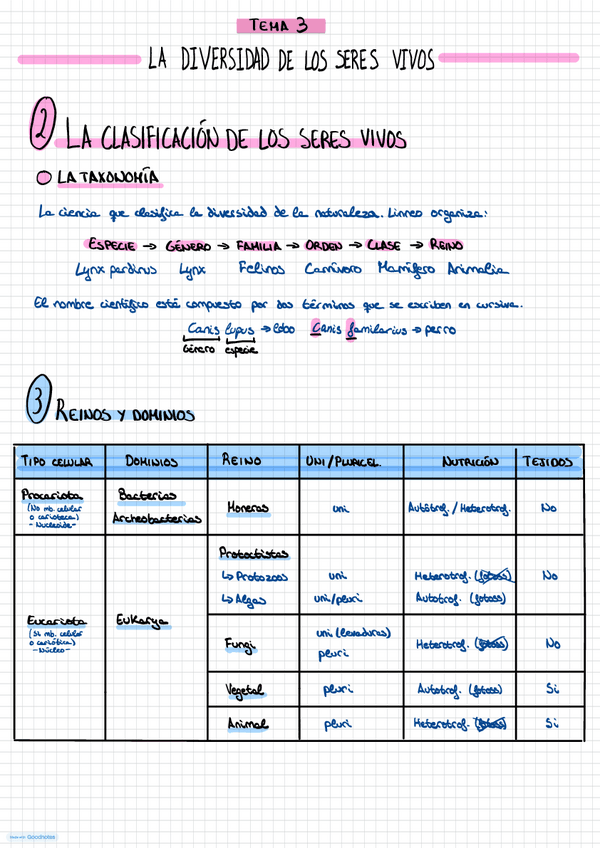 TEMA 3
LA DIVERSIDAD DE LOS SERES VIVOS
2 LA CLASIFICACIÓN DE LOS SERES VIVOS
LA TAXONOMÍA
La ciencia que clasifica la diversidad de la naturaleza. Linneo organiza:
ESPECIE → GÉNERO → FAMILIA → ORDEN → CLASE → REINO
Lynx pardinus Lynx Felinos Carnívoro Mamífero Animalia
El nombre científico está compuesto por dos términos que se escriben en cursiva.
Canis lupus → lobo Canis familiarius → perro
Género especie
3 REINOS Y DOMINIOS
TIPO CELULAR DOMINIOS REINO UNI/PLURICEL. NUTRICIÓN TEJIDOS
Procariota
(No mb. celular
o carioteca)
-Nucleoide-
Bacterias
Archeobacterias
Moneras uni Autótrof. / Heterotrof. No
Eucariota
(Sí mb. celular
o cariótica)
-Núcleo-
Eukarya
Protoctistas
↳ Protozoos uni Heterotrof. (fotoss) No
↳ Algas uni/pluri Autotrof. (fotoss)
Fungi uni (levaduras) Heterotrof. (fotoss) No
pluri
Vegetal pluri Autotrof. (fotoss) Si
Animal pluri Heterotrof. (fotoss) Si
Made with Goodnotes